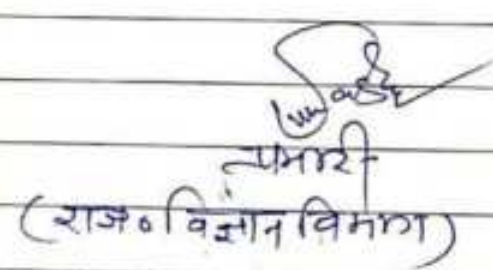 प्रभारी
(राज० विज्ञान विभाग)